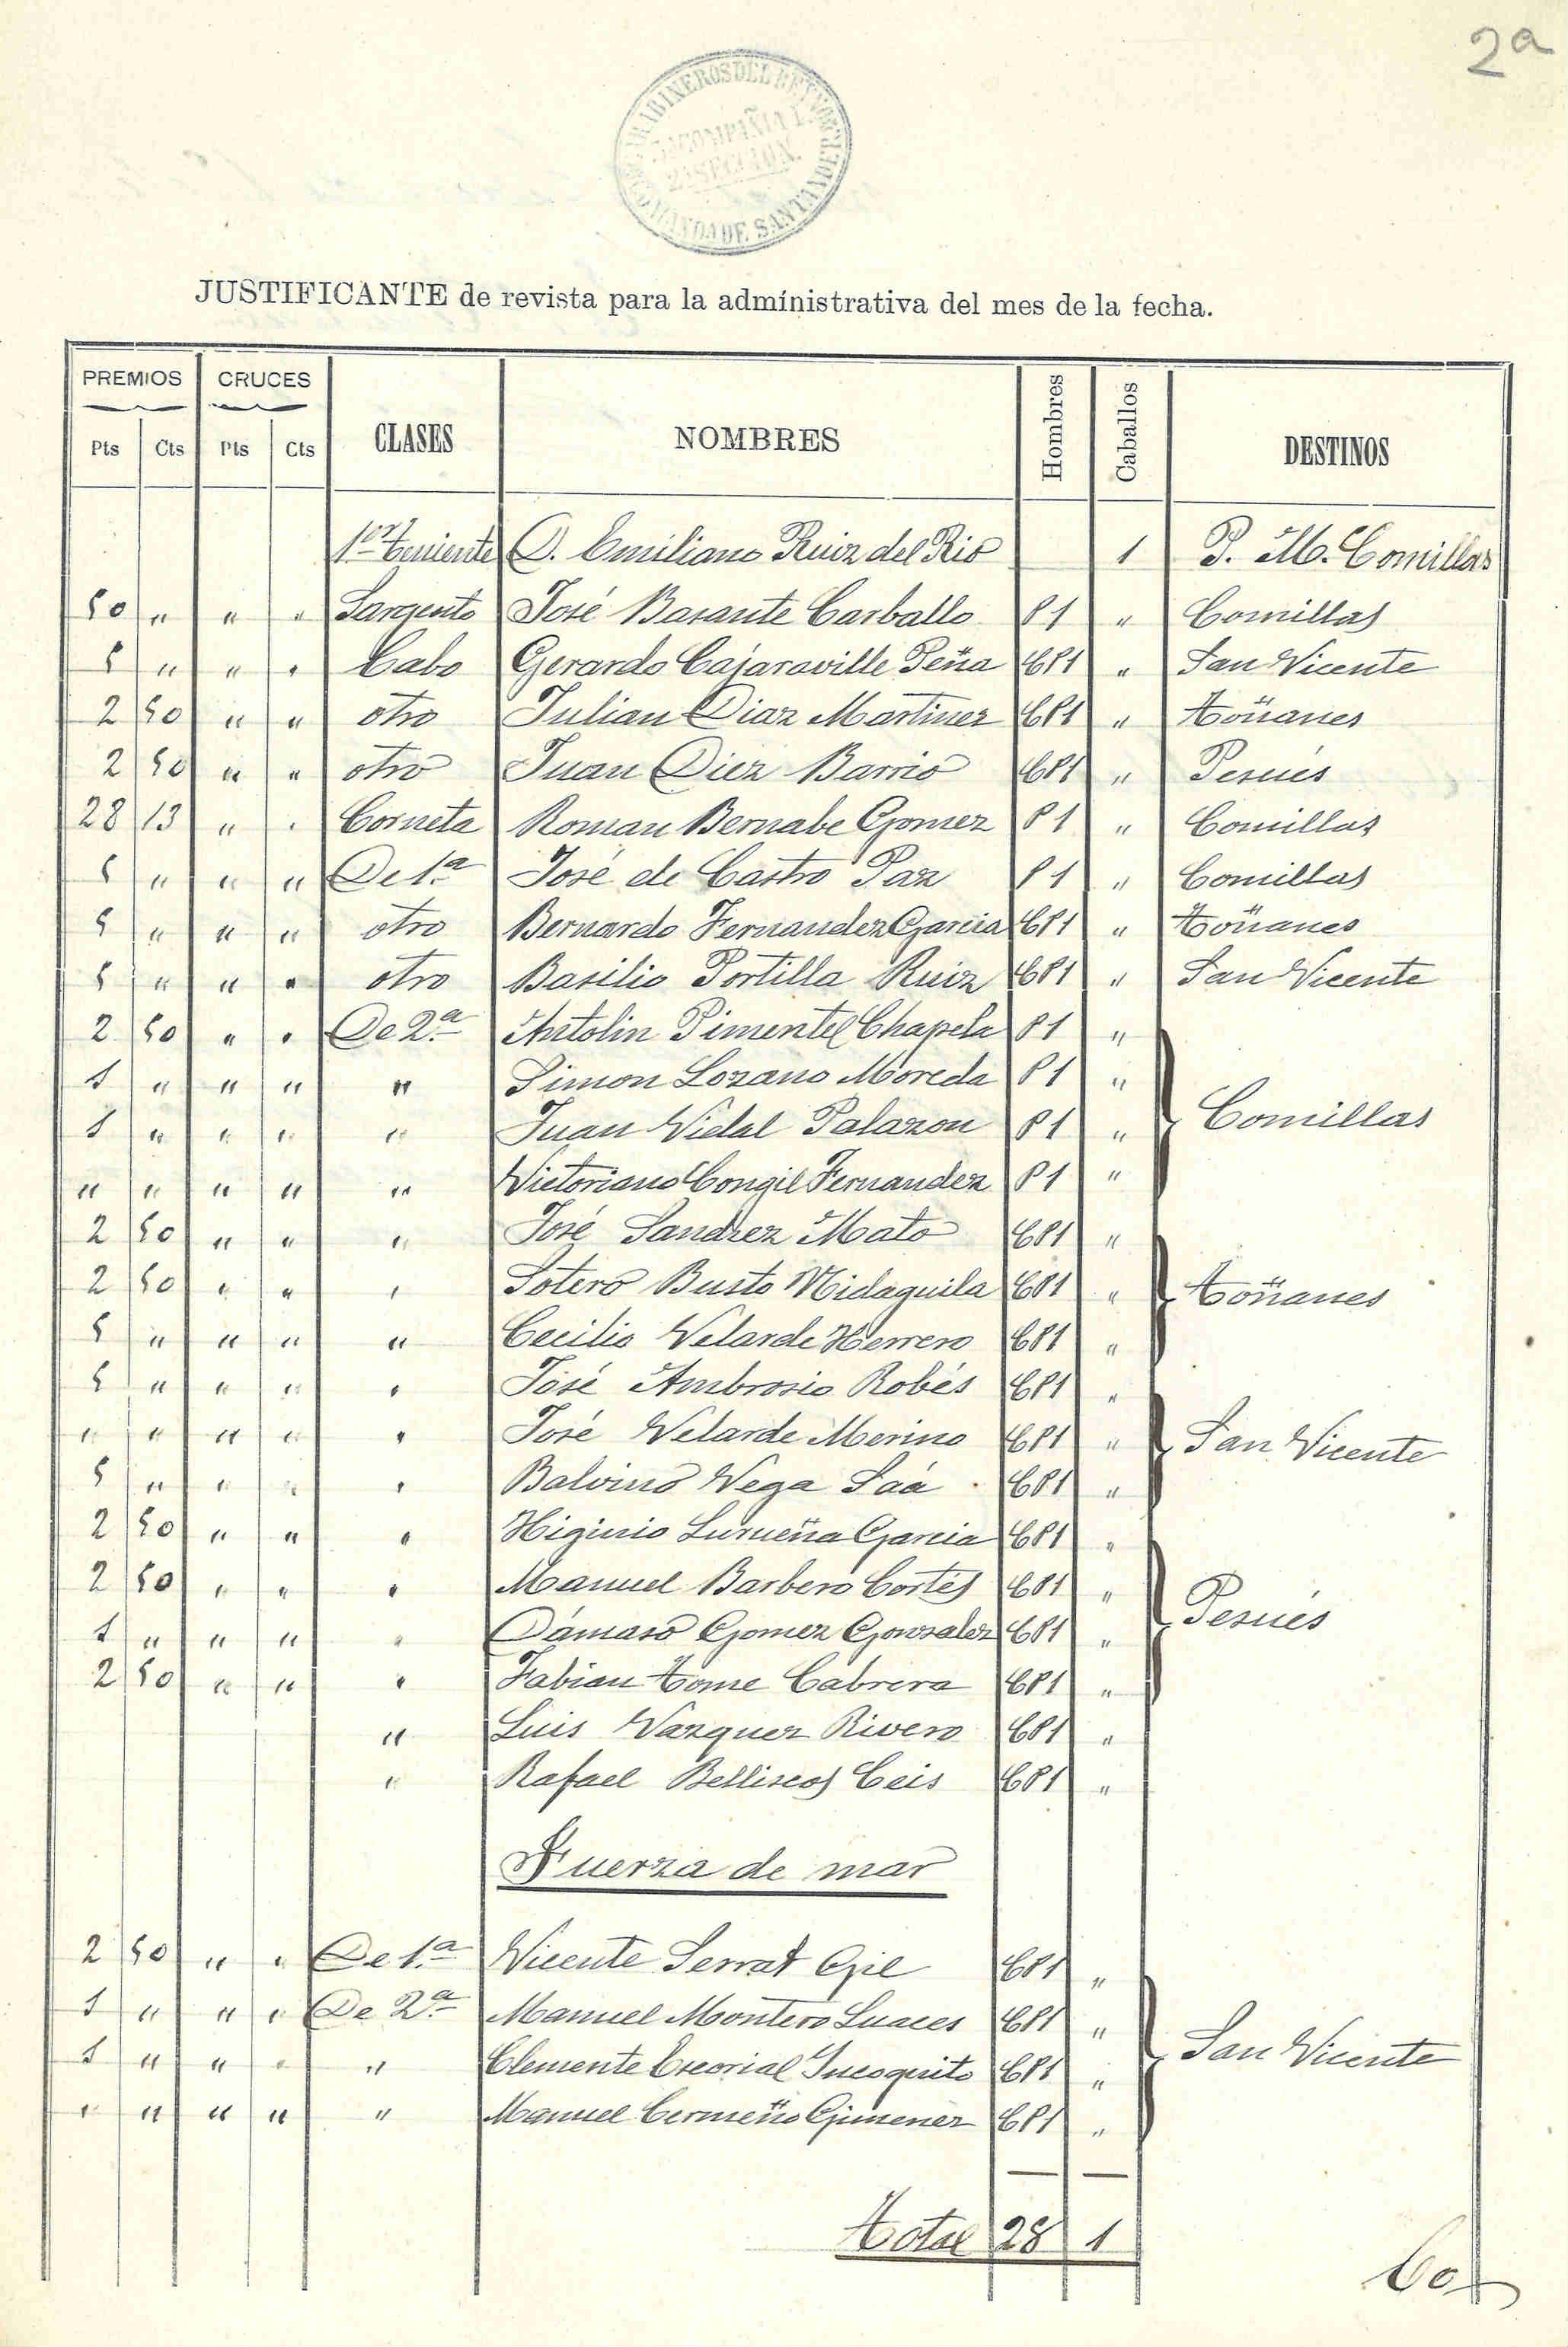 2ª
CARABINEROS DEL REYNO
COMANDA DE SANTANDER
COMPAÑIA
2ª SECCION.
JUSTIFICANTE de revista para la administrativa del mes de la fecha.
PREMIOS CRUCES CLASES NOMBRES Hombres Caballos DESTINOS
Pts Cts Pts Cts
1er Teniente D. Emiliano Ruiz del Rio 1 P. M. Comillas
50 " " " Sargento José Basante Carballo P1 " Comillas
5 " " " Cabo Gerardo Cajaraville Peña CP1 " San Vicente
2 50 " " otro Julian Diaz Martinez CP1 " Toñanes
2 50 " " otro Juan Diez Barrio CP1 " Pesués
28 13 " " Corneta Roman Bernabe Gomez P1 " Comillas
5 " " " De 1.ª José de Castro Paz P1 " Comillas
5 " " " otro Bernardo Fernandez Garcia CP1 " Toñanes
5 " " " otro Basilio Portilla Ruiz CP1 " San Vicente
2 50 " " De 2.ª Antolin Pimentel Chapela P1 "
1 " " " " Simon Lozano Moreda P1 "
1 " " " " Juan Vidal Palazon P1 " Comillas
" " " " " Victoriano Congil Fernandez P1 "
2 50 " " " José Sanchez Mato CP1 "
2 50 " " " Sotero Busto Midaguila CP1 " Toñanes
5 " " " " Cecilio Velarde Herrero CP1 "
5 " " " " José Ambrosio Robés CP1 "
" " " " " José Velarde Merino CP1 " San Vicente
5 " " " " Balvino Vega Saá CP1 "
2 50 " " " Higinio Lurueña Garcia CP1 "
2 50 " " " Manuel Barbero Cortés CP1 " Pesués
1 " " " " Dámaso Gomez Gonzalez CP1 "
2 50 " " " Fabian Tome Cabrera CP1 "
" Luis Vazquez Rivero CP1 "
" Rafael Belliscos Ceis CP1 "
Fuerza de mar
2 50 " " De 1.ª Vicente Serrat Gil CP1 "
1 " " " De 2.ª Manuel Montero Luaces CP1 "
1 " " " " Clemente Escorial Incognito CP1 " San Vicente
" " " " " Manuel Cermeño Gimenez CP1 "
Total 28 1
Co